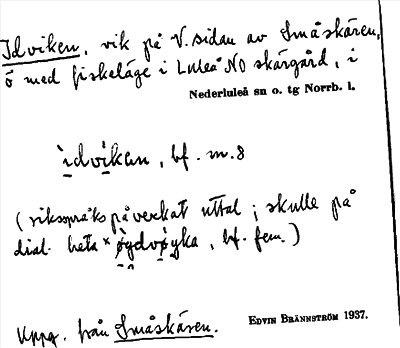 Idviken, vik på V.sidan av Småskären,
ö med fiskeläge i Luleå NO skärgård, i
Nederluleå sn o. tg Norrb. l.
ìdvìkan, bf. m.8
(riksspråkspåverkat uttal; skulle på
dial. heta × øydvøyka, bf. fem.)
Uppg. från Småskären.
EDVIN BRÄNNSTRÖM 1937.